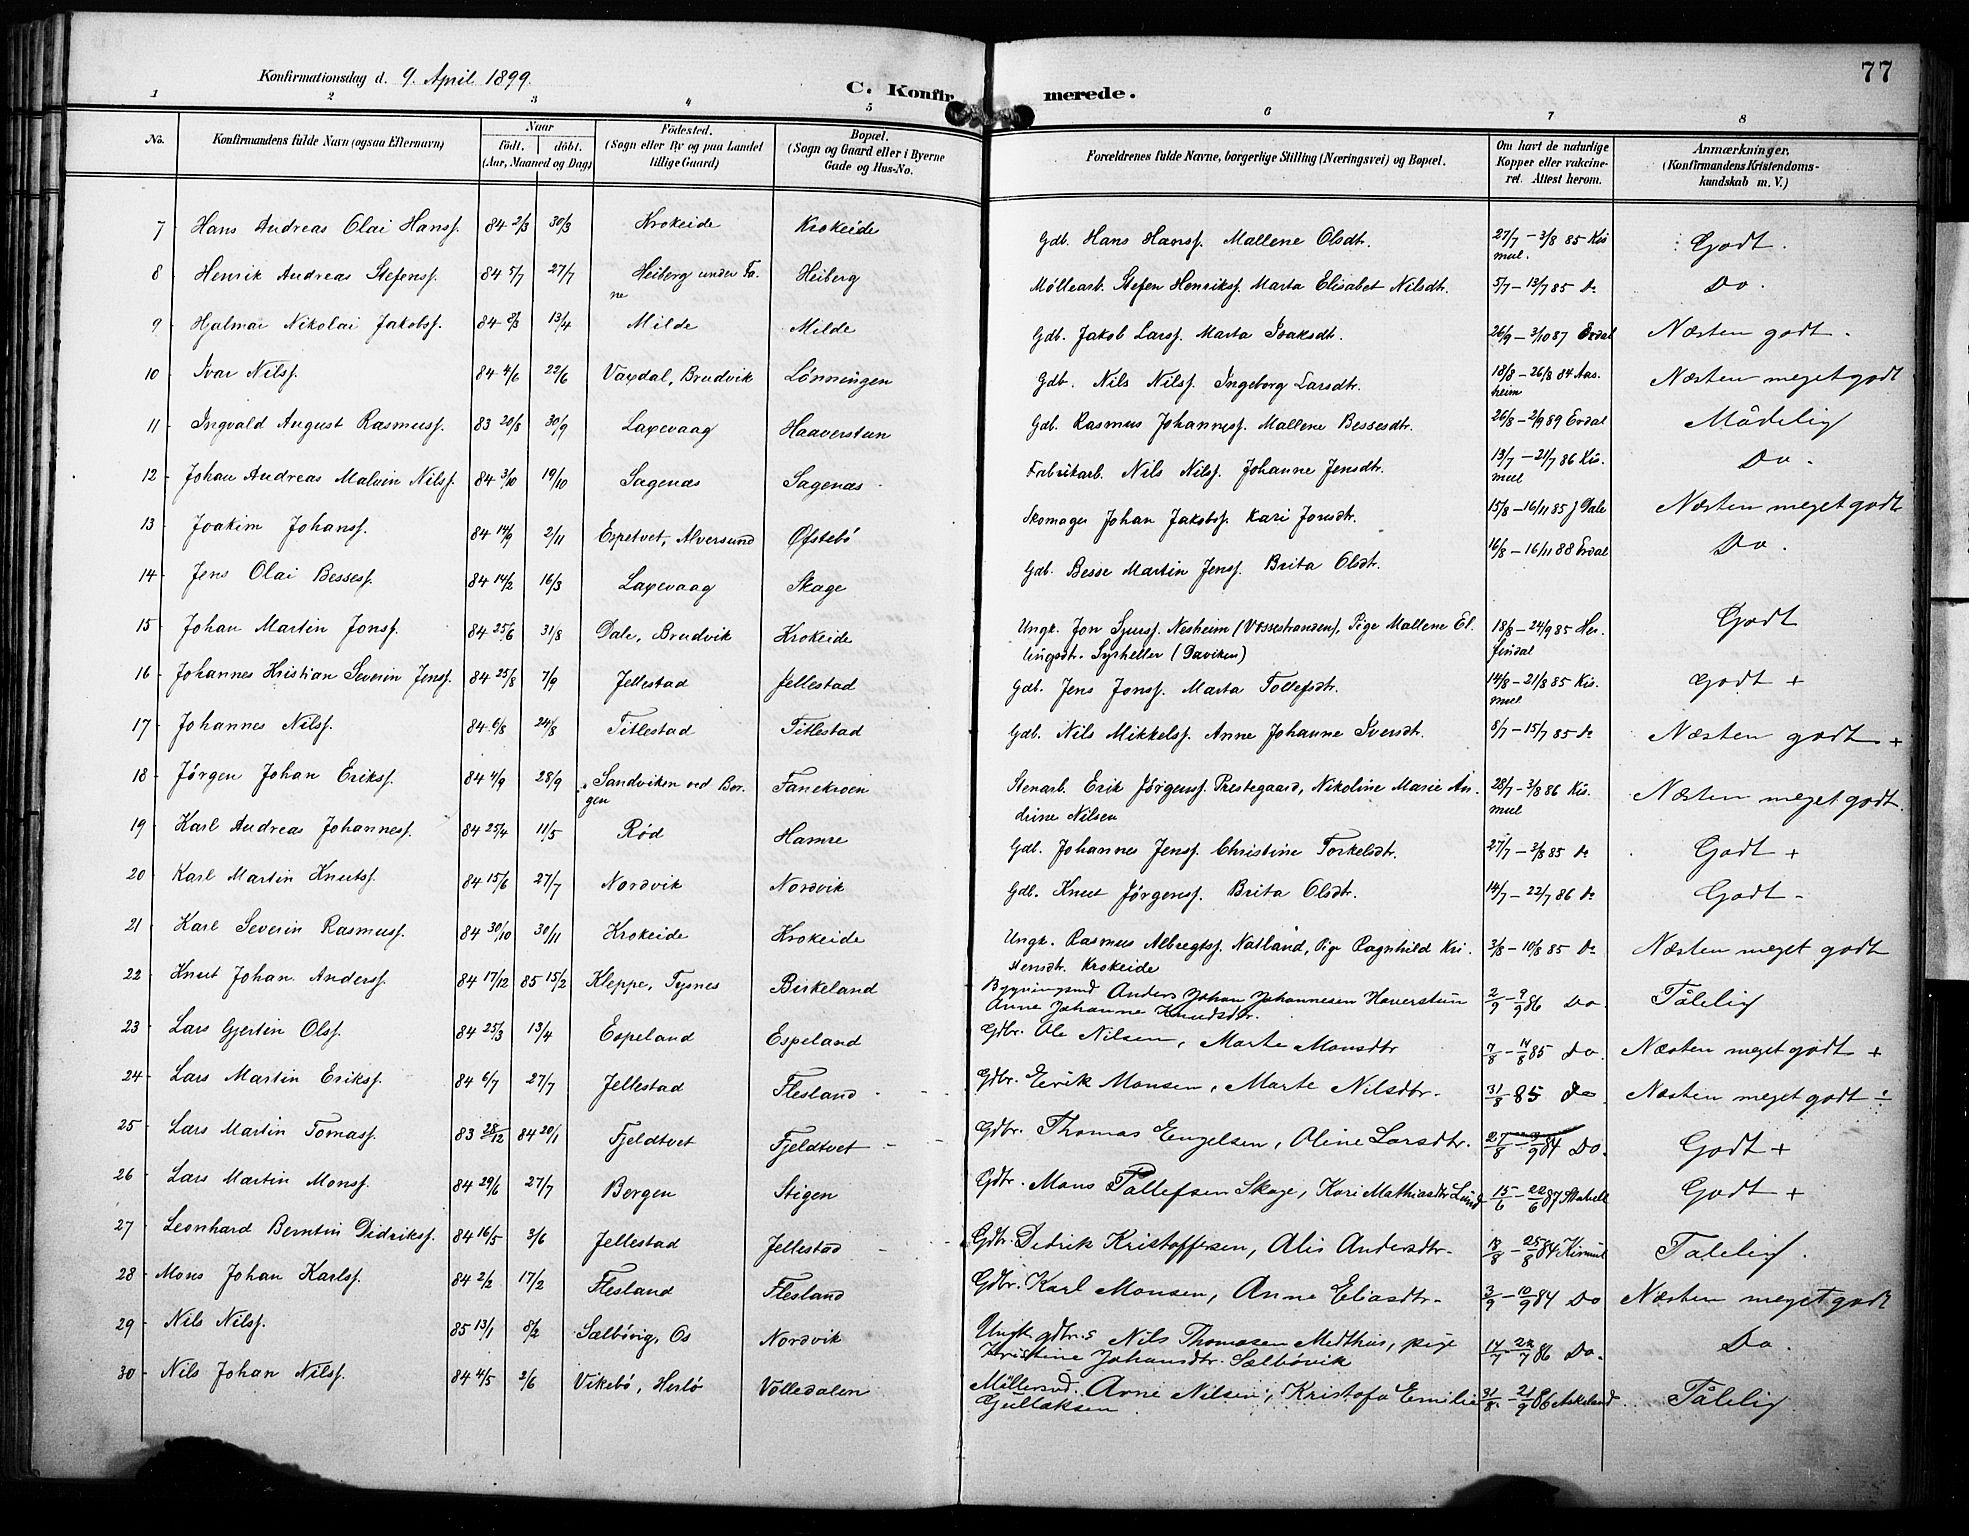 Konfirmationsdag d. 9. April 1899.
C. Konfirmerede.
77
1 2 3 4 5 6 7 8
No. | Konfirmandens fulde Navn (ogsaa Efternavn) | Naar født. døbt. (Aar, Maaned og Dag) | Fødested. (Sogn eller By og paa Landet tillige Gaard) | Bopæl. (Sogn og Gaard eller i Byerne Gade og Hus-No. | Forældrenes fulde Navne, borgerlige Stilling (Næringsvei) og Bopæl. | Om havt de naturlige Kopper eller vakcineret. Attest herom. | Anmærkninger. (Konfirmandens Kristendomskundskab m. V.)
7 Hans Andreas Olai Hansf. 84 2/3 30/3 Krokeide Krokeide Gdb. Hans Hansf. Mallene Olsdtr. 27/7 – 3/8 85 Kismul. Godt.
8 Henrik Andreas Stefensf. 84 5/7 27/7 Heiberg under Fane Heiberg Möllearb. Stefen Henriksf. Marta Elisabet Nilsdtr. 5/7 – 13/7 85 do Do.
9 Hjalmar Nikolai Jakobsf. 84 8/3 13/4 Milde Milde Gdb. Jakob Larsf. Marta Isaksdt. 26/9 – 3/10 87 Erdal Næsten godt.
10 Ivar Nilsf. 84 4/6 22/6 Vaxdal, Brudvik Lönningen Gdb. Nils Nilsf. Ingeborg Larsdtr. 18/8 – 26/8 84 Aasheim Næsten meget godt
11 Ingvald August Rasmusf. 83 20/8 30/9 Laxevaag Haaverstun Gdb. Rasmus Johannesf. Mallene Bessesdtr. 26/8 – 2/9 89 Erdal Mådelig
12 Johan Andreas Malvin Nilsf. 84 3/10 19/10 Sagenæs Sagenæs Fabrikarb. Nils Nilsf. Johanne Jensdtr. 13/7 – 21/7 86 Kismul Do.
13 Joakim Johansf. 84 14/9 2/11 Espetvet, Alversund Öfstebö Skomager Johan Jakobsf. Kari Jonsdtr. 15/8 – 16/11 85 J Dale Næsten meget godt
14 Jens Olai Bessesf. 84 14/2 16/3 Laxevaag Skage Gdb. Besse Martin Jensf. Brita Olsdtr. 16/8 – 16/11 88 Erdal Do.
15 Johan Martin Jonsf. 84 25/6 31/8 Dale, Brudvik Krokeide Ungk. Jon Sjursf. Nesheim (Vossestranden), Pige Mallene Ellingsdtr. Syrheller (Daviken) 18/8 – 24/9 85 Herfindal Godt
16 Johannes Kristian Severin Jensf. 84 25/8 7/9 Jellestad Jellestad Gdb. Jens Jonsf. Marta Tollefsdtr. 14/8 – 21/8 85 Kismul Godt +
17 Johannes Nilsf. 84 6/8 24/8 Titlestad Titlestad Gdb. Nils Mikkelsf. Anne Johanne Iversdtr. 8/7 – 15/7 85 do Næsten godt +
18 Jørgen Johan Eriksf. 84 4/9 28/9 Sandviken ved Bergen Fanekroen Stenarb. Erik Jørgensf. Prestegaard, Nikoline Marie Andrine Nilsen 28/7 – 3/8 86 Kismul Næsten meget godt.
19 Karl Andreas Johannesf. 84 25/4 11/5 Rød Hamre Gdb. Johannes Jensf. Christine Torkelsdtr. 27/7 – 3/8 85 do Godt +
20 Karl Martin Knutsf. 84 15/6 27/7 Nordvik Nordvik Gdb. Knut Jörgensf. Brita Olsdtr. 14/7 – 22/7 86 do Godt -
21 Karl Severin Rasmusf. 84 30/10 30/11 Krokeide Krokeide Ungk. Rasmus Albregtsf. Natland, Pige Ragnhild Kristensdtr. Krokeide 3/8 – 10/8 85 do Næsten meget godt
22 Knut Johan Andersf. 84 17/12 85 15/2 Kleppe, Tysnes Birkeland Bygningssnd Anders Johan Johannesen Haverstun Anne Johanne Knudsdtr. 2/9 – 9/9 86 Do Tålelig
23 Lars Gjertin Olsf. 84 25/3 13/4 Espeland Espeland Gdbr. Ole Nilsen, Marte Monsdtr 7/8 – 14/8 85 do. Næsten meget godt +
24 Lars Martin Eriksf. 84 6/7 27/7 Jellestad Flesland Gdbr. Eirik Monsen, Marte Nilsdtr. 31/8 85 do Næsten meget godt ÷
25 Lars Martin Tomasf. 83 28/12 84 20/1 Fjeldtvet Fjeldtvet Gdbr. Thomas Engelsen, Oline Larsdtr. 27/8 – 3/9 84 Do. Godt +
26 Lars Martin Monsf. 84 29/6 27/7 Bergen Stigen Gdbr. Mons Tollefsen Skage, Kari Mathiasdtr Lund 15/6 – 22/6 87 Godt +
27 Leonhard Berntin Didriksf. 84 16/5 3/6 Jellestad Jellestad Gdbr. Didrik Kristoffersen, Alis Andersdtr. 18/8 – 25/8 84 Kismul Tålelig.
28 Mons Johan Karlsf. 84 2/2 17/2 Flesland Flesland Gdbr. Karl Monsen, Anne Eliasdtr. 3/9 – 10/9 84 Do Næsten meget godt
29 Nils Nilsf. 85 13/1 8/2 Sælbövig, Os Nordvik Ungk. gdbr.s Nils Thomasen Midthus, pige Kristine Johansdtr. Sælbövik 14/7 – 22/7 86 Do. Do.
30 Nils Johan Nilsf. 84 4/5 2/6 Vikebö, Herlö Volledalen Möllersvd. Arne Nilsen, Kristofa Emilie Gullaksen 31/8 – 21/9 86 Askeland Tålelig